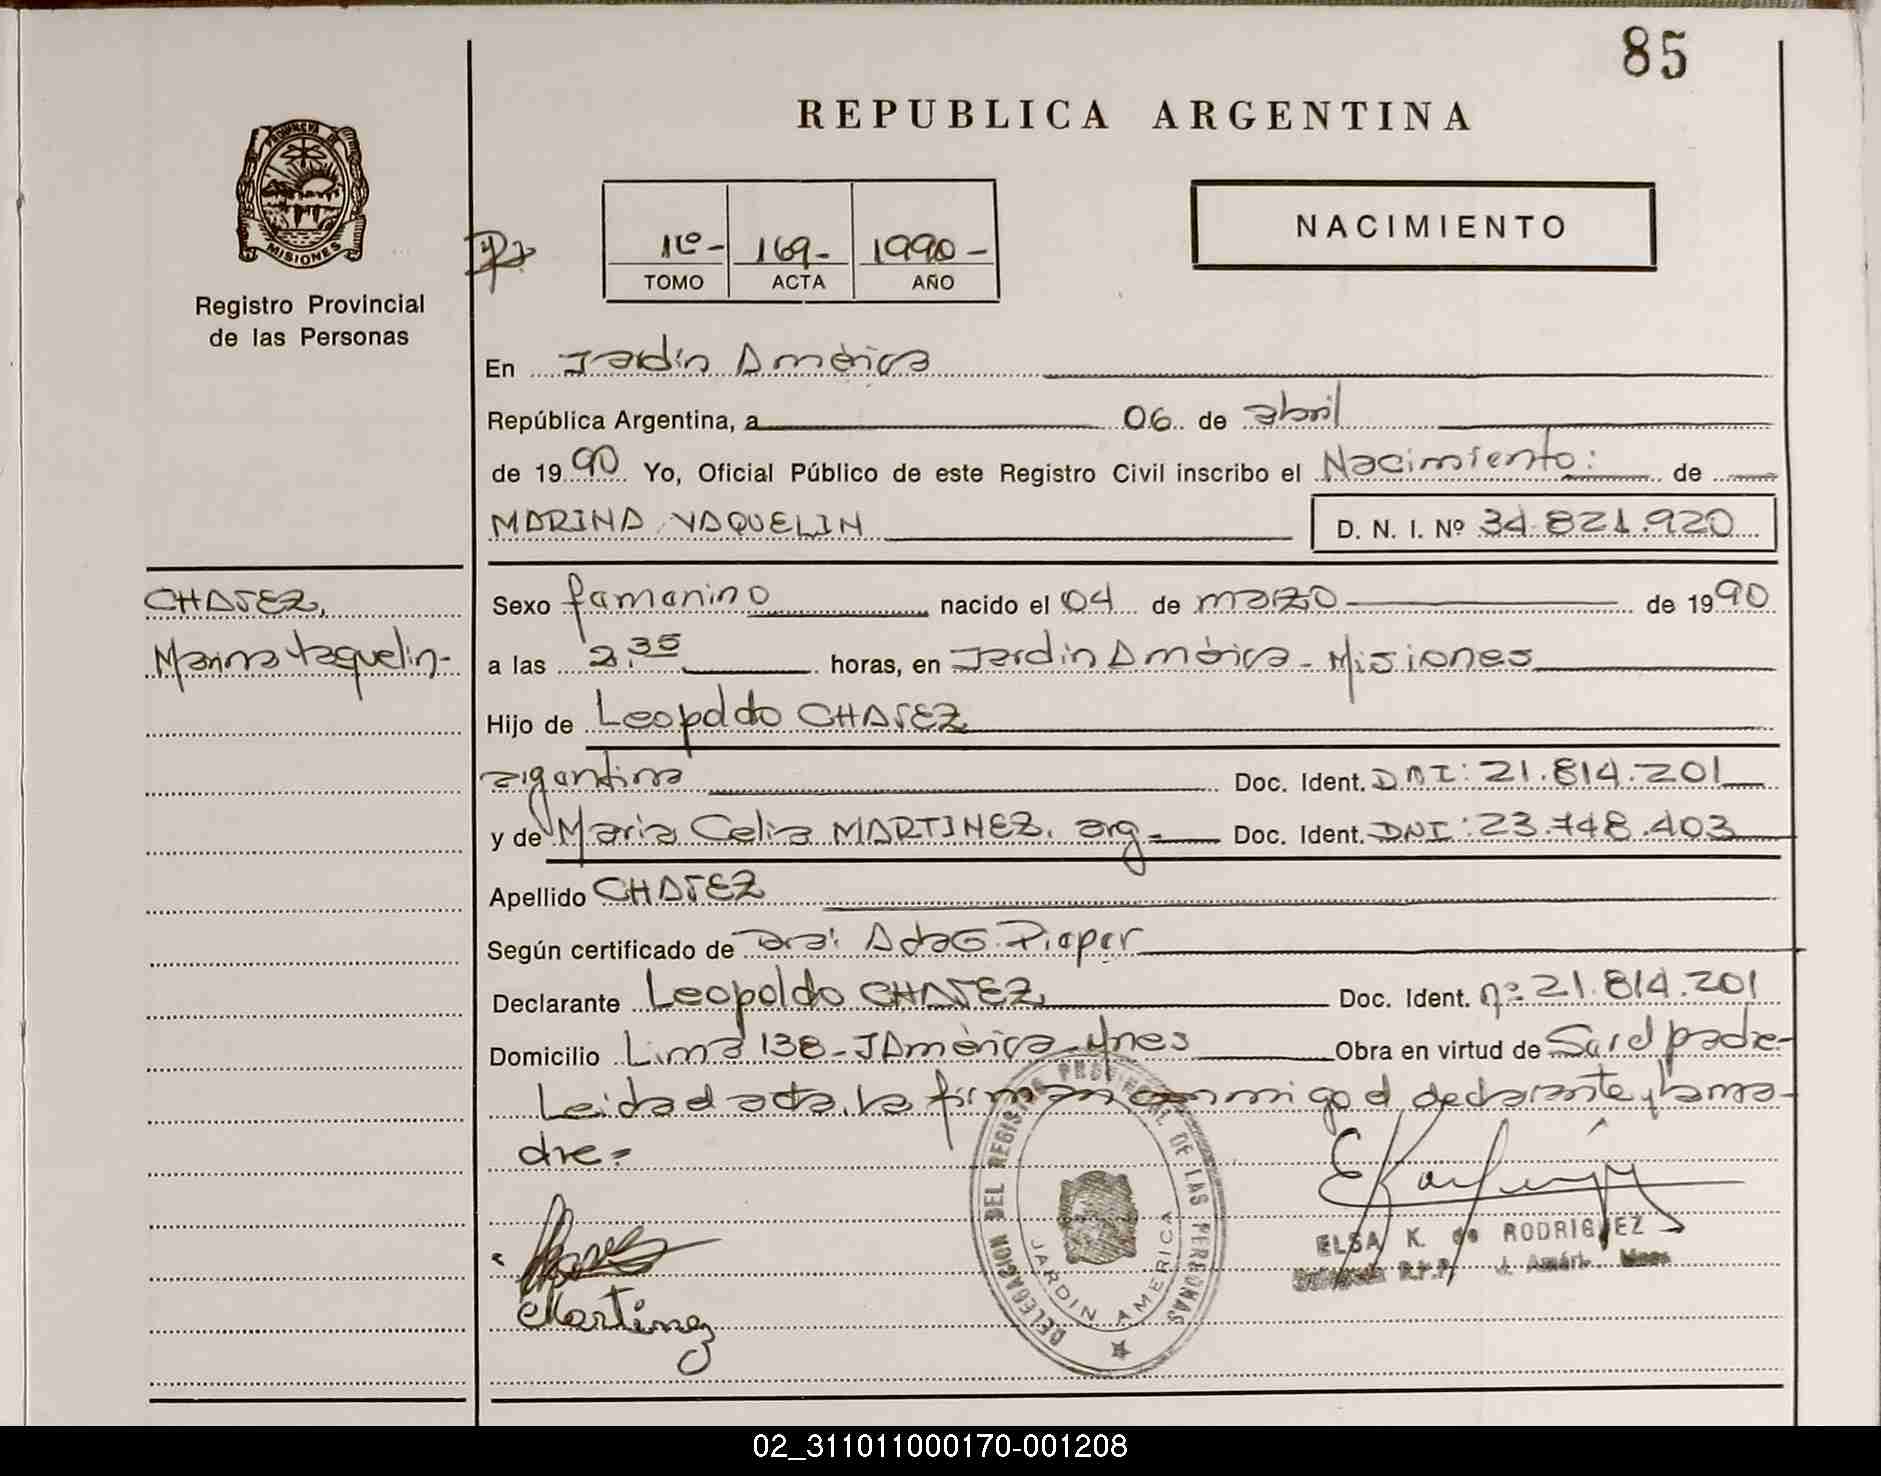 85
REPUBLICA ARGENTINA
PROVINCIA DE
MISIONES
Registro Provincial
de las Personas
1º- 169- 1990-
TOMO ACTA AÑO
NACIMIENTO
En Jardín América
República Argentina, a 06 de abril
de 1990 Yo, Oficial Público de este Registro Civil inscribo el Nacimiento: de
MARINA YAQUELIN D. N. I. Nº 34.821.920
CHAVEZ,
Marina Yaquelin-
Sexo femenino nacido el 04 de marzo de 1990
a las 2,35 horas, en Jardín América - Misiones
Hijo de Leopoldo CHAVEZ
argentina Doc. Ident. DNI: 21.814.201
y de María Celia MARTINEZ. arg= Doc. Ident. DNI: 23.748.403
Apellido CHAVEZ
Según certificado de Dra: Ada G. Pieper
Declarante Leopoldo CHAVEZ Doc. Ident. nº 21.814.201
Domicilio Lima 138- J América - Mnes Obra en virtud de Ser el padre-
Leída el acta, la firman conmigo el declarante y la ma-
dre=
DELEGACION DEL REGISTRO PROVINCIAL DE LAS PERSONAS
JARDIN AMERICA
ELSA K. de RODRIGUEZ
R.P.P. J. Amér. Mnes.
CMartinez
02_311011000170-001208